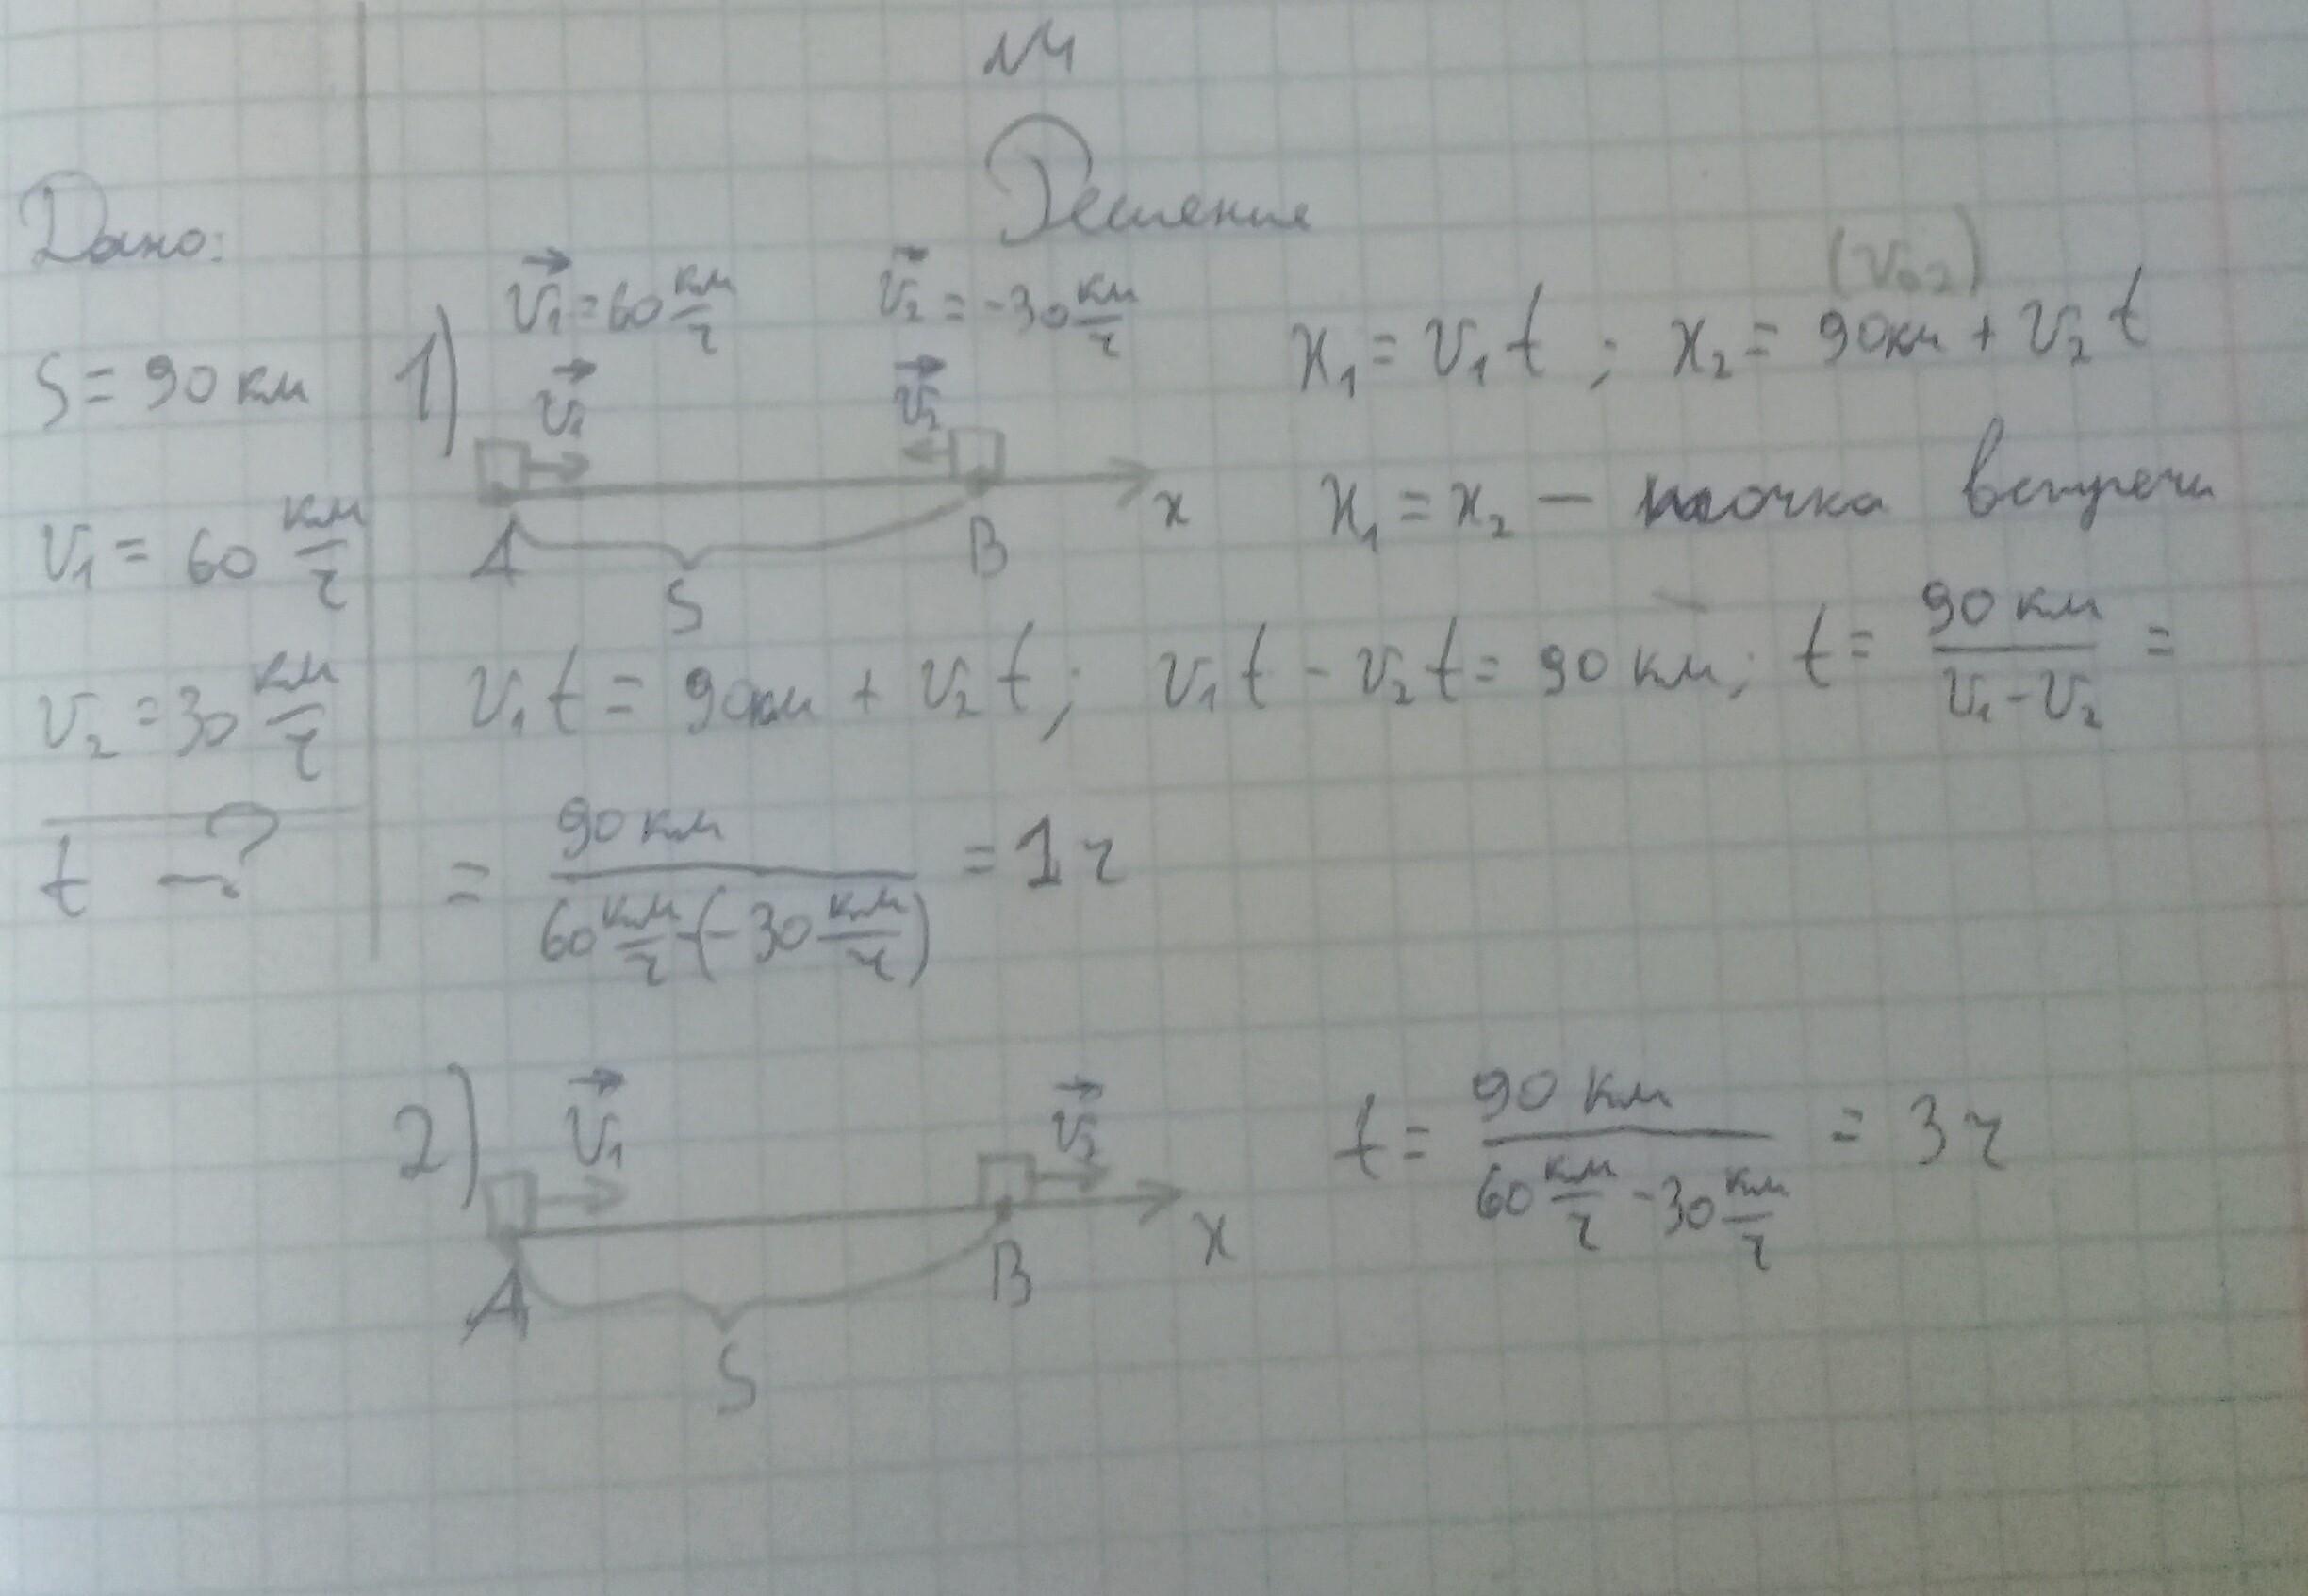 №4
Решение
Дано:
S = 90 км
v₁ = 60 км/ч
v₂ = 30 км/ч
t — ?
1)
v⃗₁ = 60 км/ч   v⃗₂ = -30 км/ч
v⃗₁   v⃗₂
A   B   x
S
(v₀₂)
x₁ = v₁t ; x₂ = 90км + v₂t
x₁ = x₂ — точка встречи
v₁t = 90км + v₂t ; v₁t - v₂t = 90 км ; t = 90 км/(v₁ - v₂) =
= 90 км/(60 км/ч - (-30 км/ч)) = 1 ч
2)
v⃗₁   v⃗₂
A   B   x
S
t = 90 км/(60 км/ч - 30 км/ч) = 3 ч